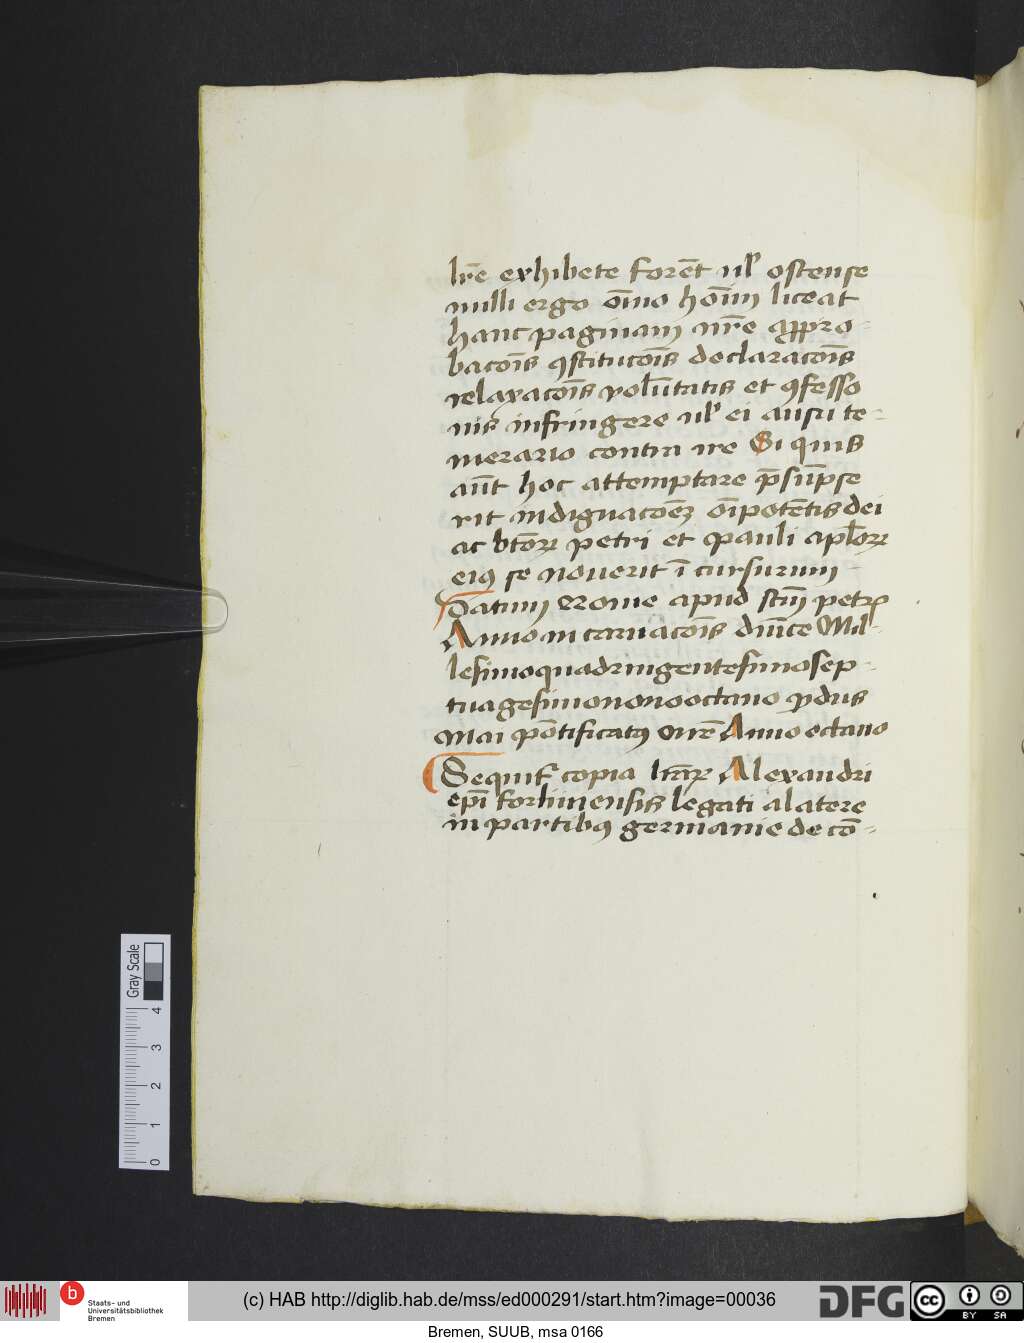 lr̄e exhibete forēt ul' ostense
nulli ergo oīno hoīm liceat
hanc paginam nr̄e appro-
bacōīs ꝯstitucōīs declaracōīs
relaxacōīs volūtatis et ꝯfesso
nis infringere ul' ei ausu te-
merario contra ire Si quis
aūt hoc attemptare p̄sūpse
rit indignacōēꝫ oīpotētis dei
ac btōꝝ petri et pauli apl̄oꝝ
eiꝰ se nouerit ī cursurum
Datum Rome apud sctm̄ petrū
Anno incarnacōīs dnīce Mil-
lesimoquadringentesimosep-
tuagesimononooctauo pͥdus
Maii pōtificatꝰ nr̄i Anno octauo
Sequit᷑ copia lr̄aꝝ Alexandri
ep̄i forliuiensis legati alatere
in partibꝰ germanie de cō-
Gray Scale
4
3
2
1
0
b
Staats- und
Universitätsbibliothek
Bremen
(c) HAB http://diglib.hab.de/mss/ed000291/start.htm?image=00036
DFG
cc
BY SA
Bremen, SUUB, msa 0166